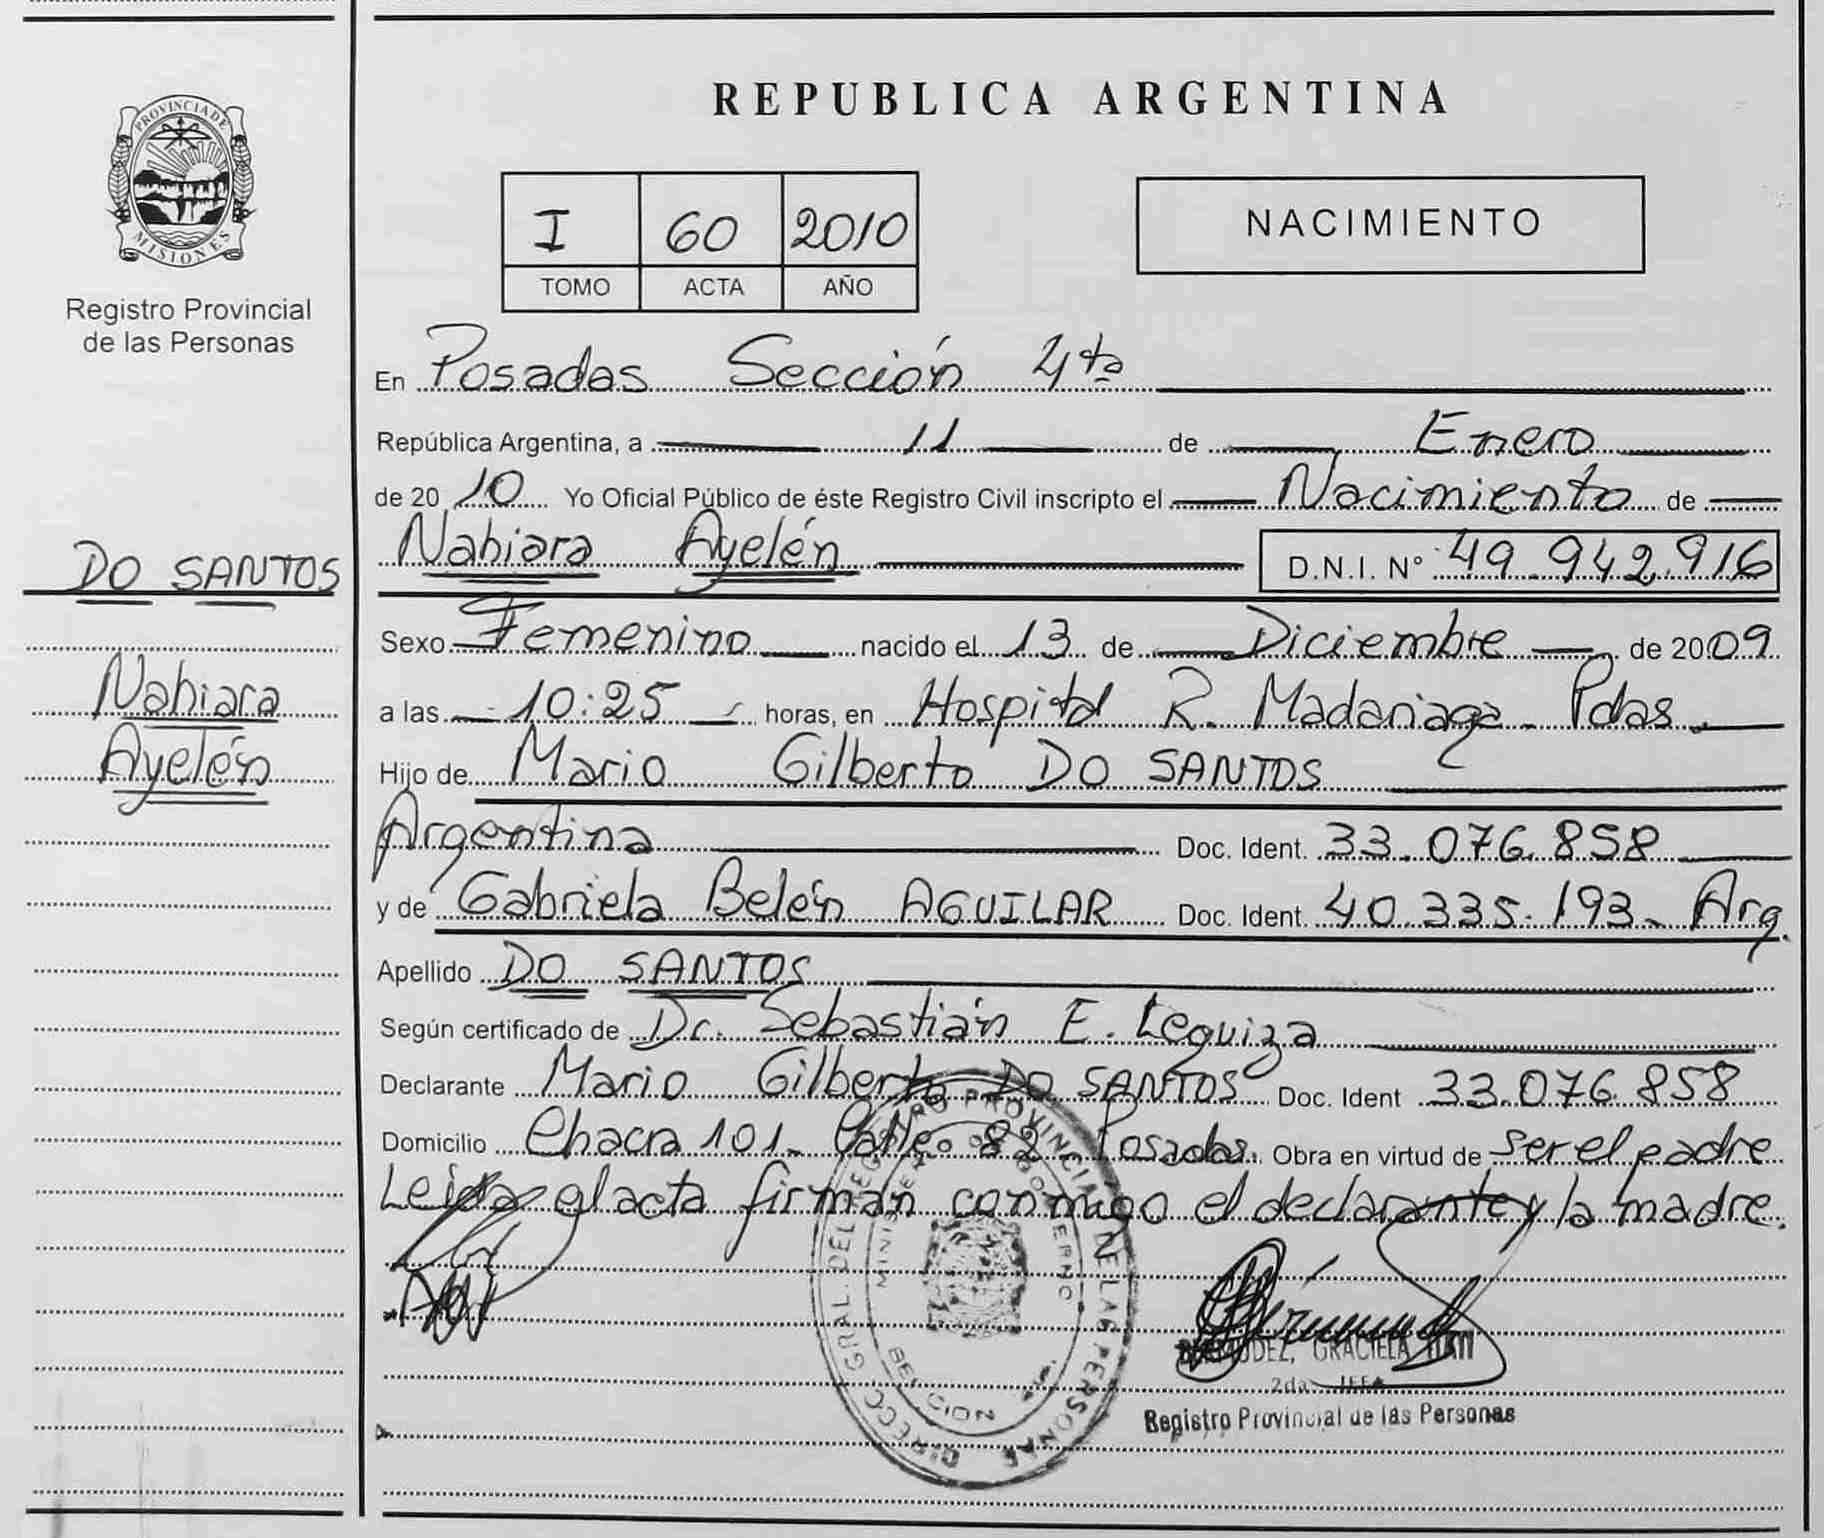 PROVINCIA DE
MISIONES
Registro Provincial
de las Personas
DO SANTOS
Nahiara
Ayelén
REPUBLICA ARGENTINA
I 60 2010
TOMO ACTA AÑO
NACIMIENTO
En Posadas Sección 4ta
República Argentina, a 11 de Enero
de 20 10 Yo Oficial Público de éste Registro Civil inscripto el Nacimiento de
Nahiara Ayelén D.N.I. Nº 49.942.916
Sexo Femenino nacido el 13 de Diciembre de 2009
a las 10:25 horas, en Hospital R. Madariaga - Pdas.
Hijo de Mario Gilberto DO SANTOS
Argentina Doc. Ident. 33.076.858
y de Gabriela Belén AGUILAR Doc. Ident. 40.335.193- Arg.
Apellido DO SANTOS
Según certificado de Dr. Sebastián E. Leguiza
Declarante Mario Gilberto DO SANTOS Doc. Ident 33.076.858
Domicilio Chacra 101- Calle 82 Posadas. Obra en virtud de ser el padre
Leida el acta firman conmigo el declarante y la madre.
DIRECC. GRAL. DEL REGISTRO PROVINCIAL DE LAS PERSONAS
GRACIELA
2da JEFA
Registro Provincial de las Personas